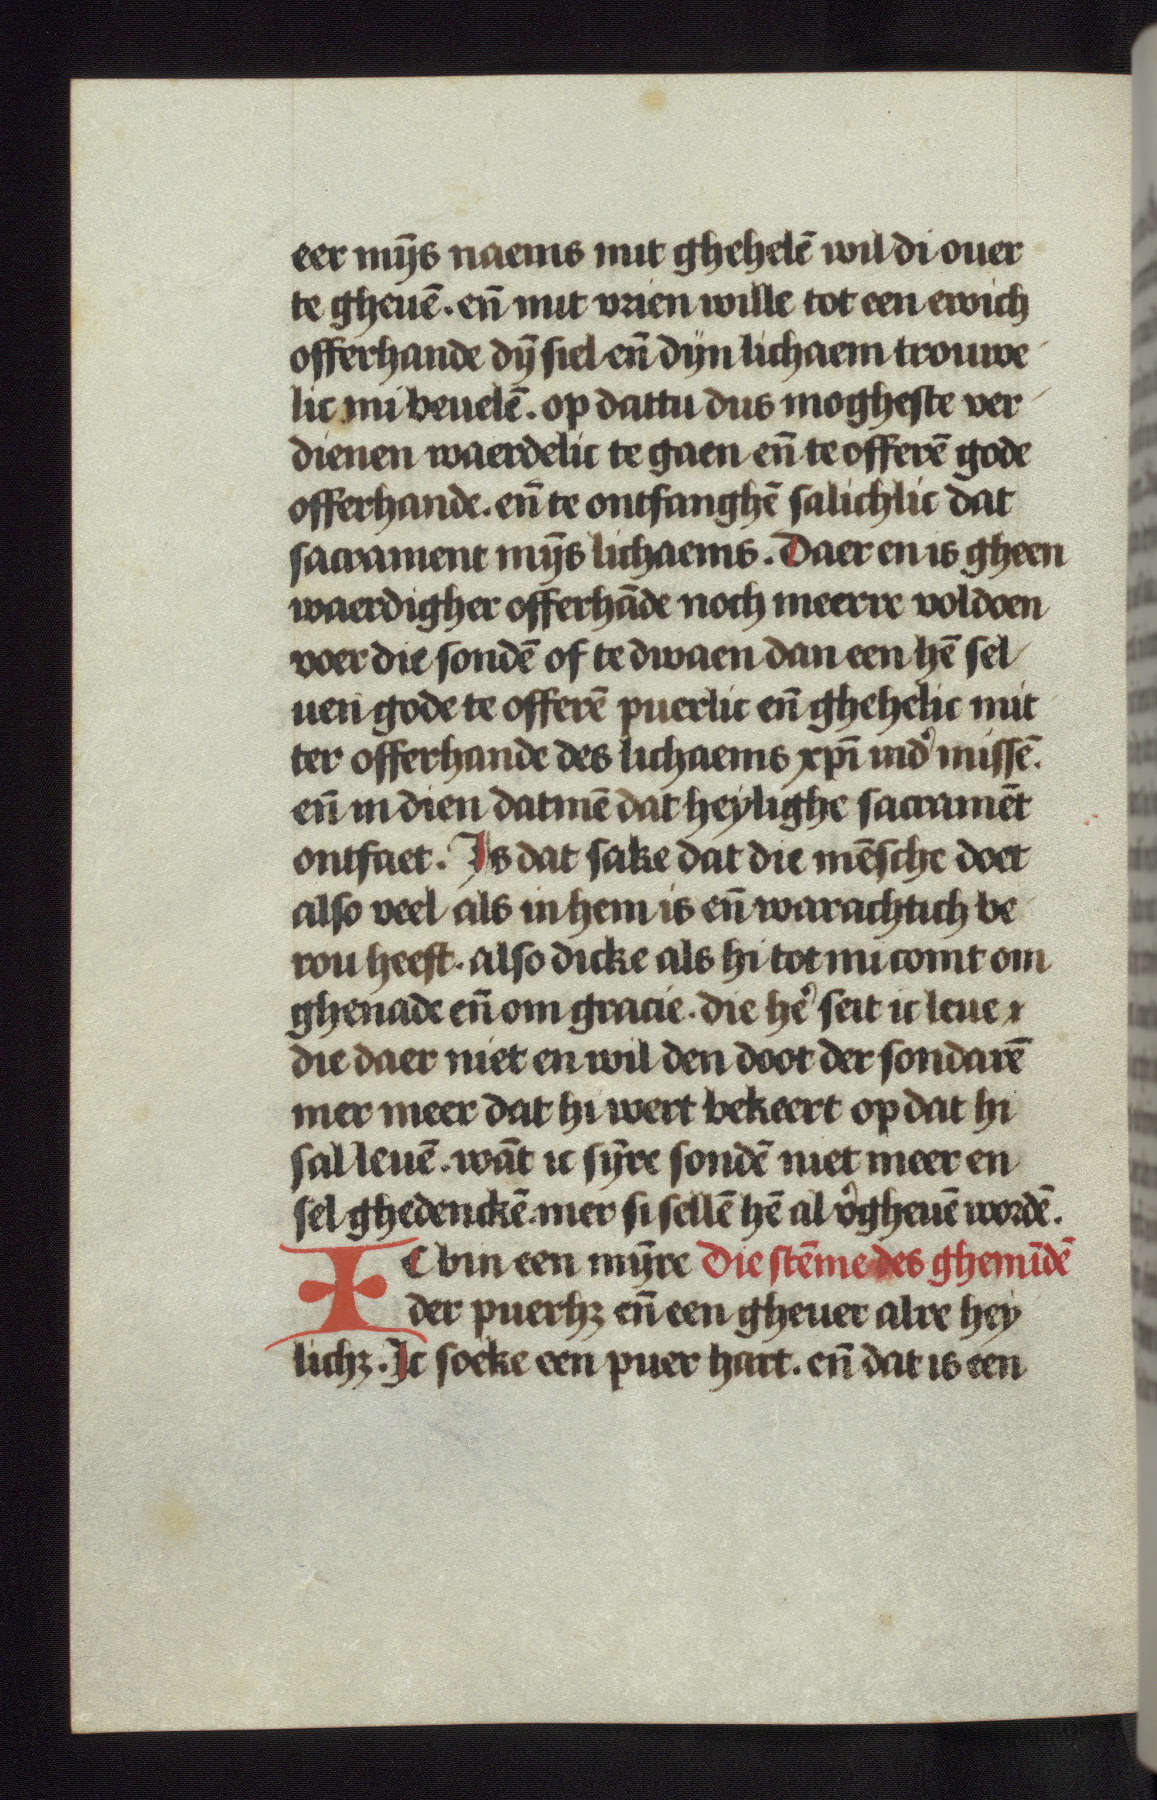 eer mijs naems mit ghehelē wil di ouer
te gheuē. eñ mit vrien wille tot een ewich
offerhande dȳ siel eñ dijn lichaem trouwe
lic mi beuelē. op dattu dus mogheste ver
dienen waerdelic te gaen eñ te offerē gode
offerhande. eñ te ontfanghē salichlic dat
sacrament mijs lichaems. Daer en is gheen
waerdigher offerhāde noch meerre voldoen
voer die sondē of te dwaen dan een hē sel
uen gode te offerē puerlic eñ ghehelic mit
ter offerhande des lichaems xpī indʼ missē.
eñ in dien datmē dat heylighe sacramēt
ontfaet. Is dat sake dat die mēsche doet
also veel als in hem is eñ warachtich be
rou heeft. also dicke als hi tot mi comt om
ghenade eñ om gracie. die hēʼ seit ic leue
die daer niet en wil den doot der sondarē
mer meer dat hi wert bekeert op dat hi
sal leuē. wāt ic sijre sondē niet meer en
sel ghedenckē. mer si sellē hē al vʼgheuē wordē.
IC bin een mijre Die stēme des ghemīdē
der puerhꝫ eñ een gheuer alre hey
lichꝫ. Ic soeke een puer hart. eñ dat is een